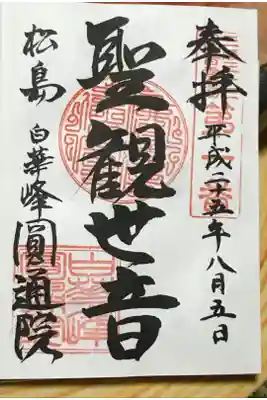 奉拝
平成二十五年八月五日
聖観世音
松島
白華峰圓通院